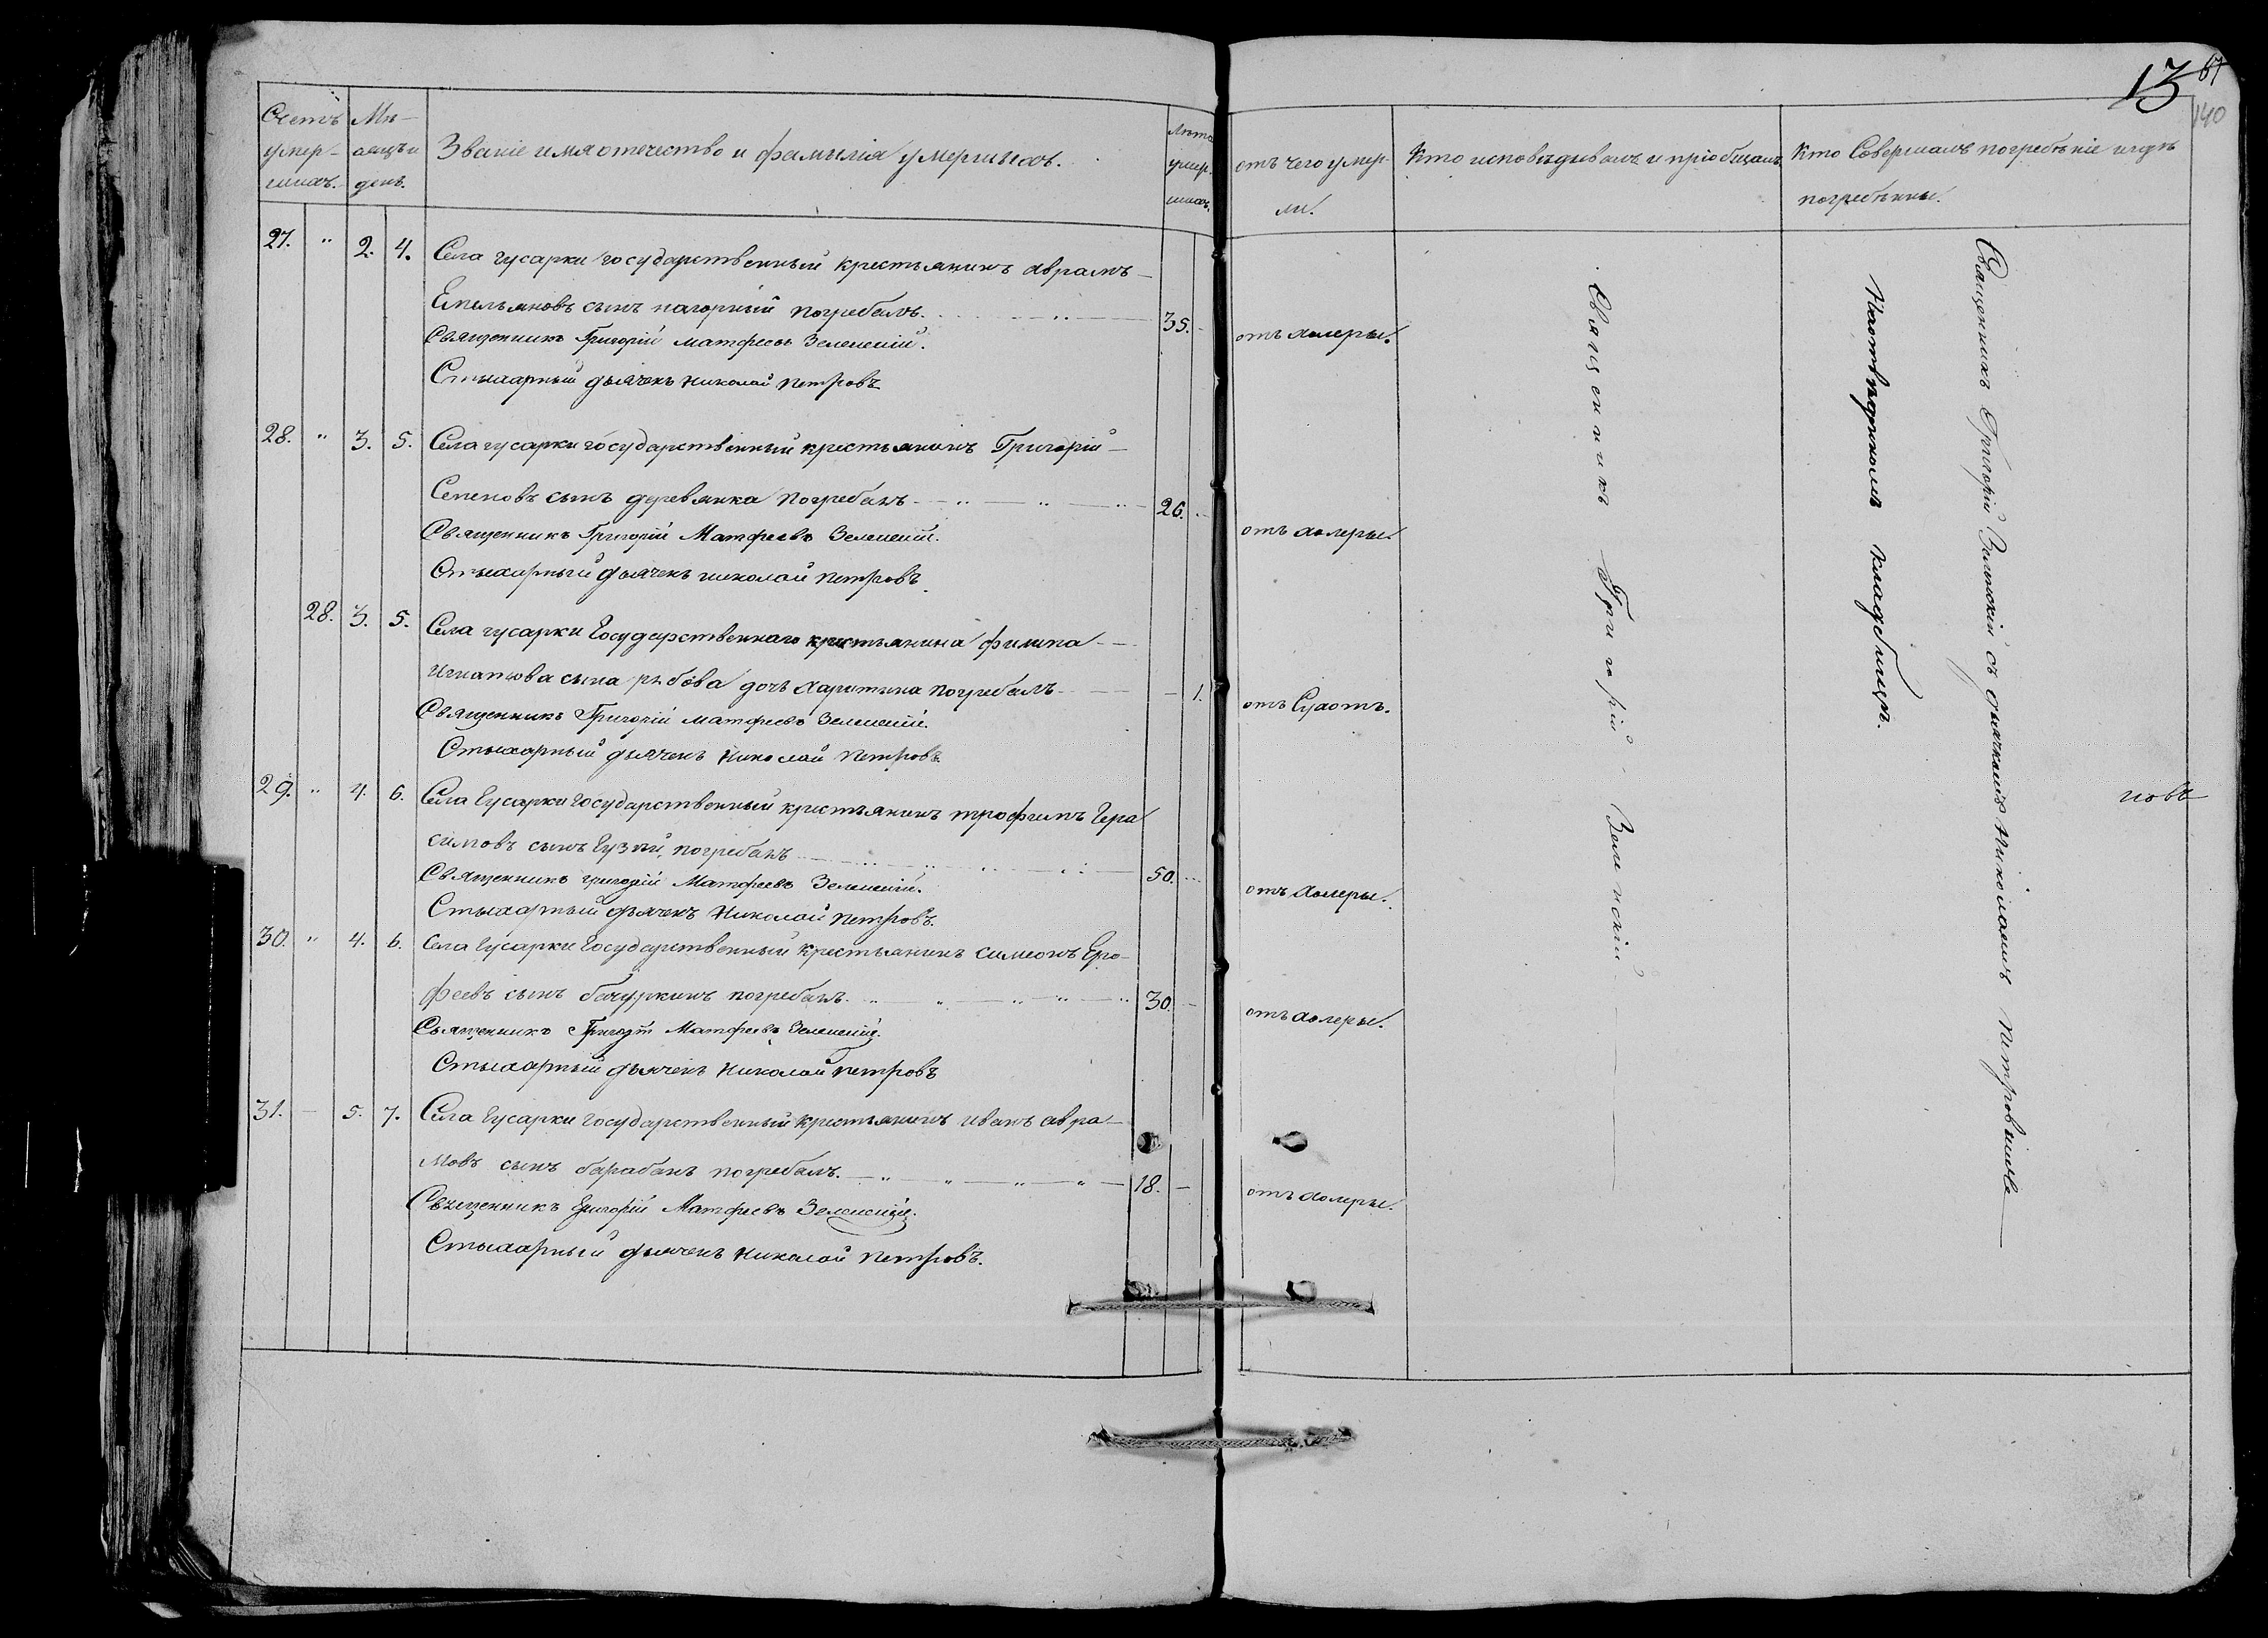 13
67
140
Счетъ умер-шихъ.
Мѣ-сяцъ и день.
Званіе имя отечество и фамилія умершихъ.
Лѣта умер-шихъ.
отъ чего умер-ли.
Кто исповѣдывалъ и пріобщалъ
Кто Совершалъ погребѣніе и гдѣ погребѣнны.
27. " 2. 4. Села гусарки государственный крестьянинъ аврамъ
Емельяновъ сынъ нагорный погребалъ. 35. отъ холеры.
Священникъ Григорій матфеевъ Зеленскій.
Стихарный дьячекъ николай петровъ
28. " 3. 5. Села гусарки государственный крестьянинъ Григорій
Семеновъ сынъ деревянка погребалъ 26. отъ холеры.
Священникъ Григорій Матфеевъ Зеленскій.
Стыхарный дьячекъ николай петровъ.
28. 3. 5. Села гусарки Государственнаго крестьянина филипа
игнатьова сына рябова дочь харитина погребалъ 1. отъ Сухотъ.
Священникъ Григорій матфеевъ Зеленскій.
Стыхарный дьячекъ николай петровъ
29. " 4. 6. Села Гусарки Государственный крестьянинъ трофимъ Гера
симовъ сынъ Гузій, погребалъ 50. отъ холеры.
Священникъ григорій Матфеевъ Зеленскій.
Стыхарный дьячекъ Николай петровъ.
30. " 4. 6. Села Гусарки Государственный крестьянинъ симеонъ Еро-
феевъ сынъ бачуркинъ погребалъ. 30. отъ холеры.
Священникъ Григорій Матфеевъ Зеленскій.
Стыхарный дьячекъ николай петровъ
31. 5. 7. Села Гусарки государственный крестьянинъ иванъ авра-
мовъ сынъ барабанъ погребалъ. 18. отъ холеры.
Священникъ Григорій Матфеевъ Зеленскій.
Стыхарный дьячекъ николай петровъ.
Священникъ Григорій Зеленскій
На отведенномъ кладбищѣ.
Священникъ Григорій Зеленскій съ дьячкомъ Николаемъ Петровымъ